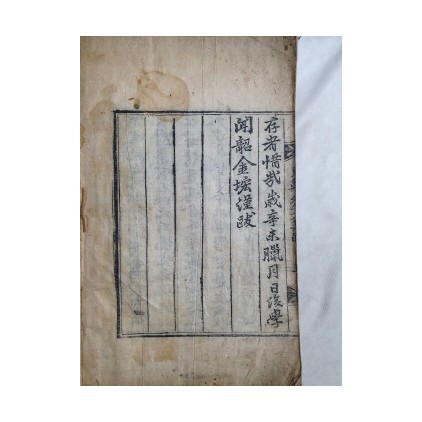 存者惜哉歲辛未臘月日後學
聞韶金㙔謹跋